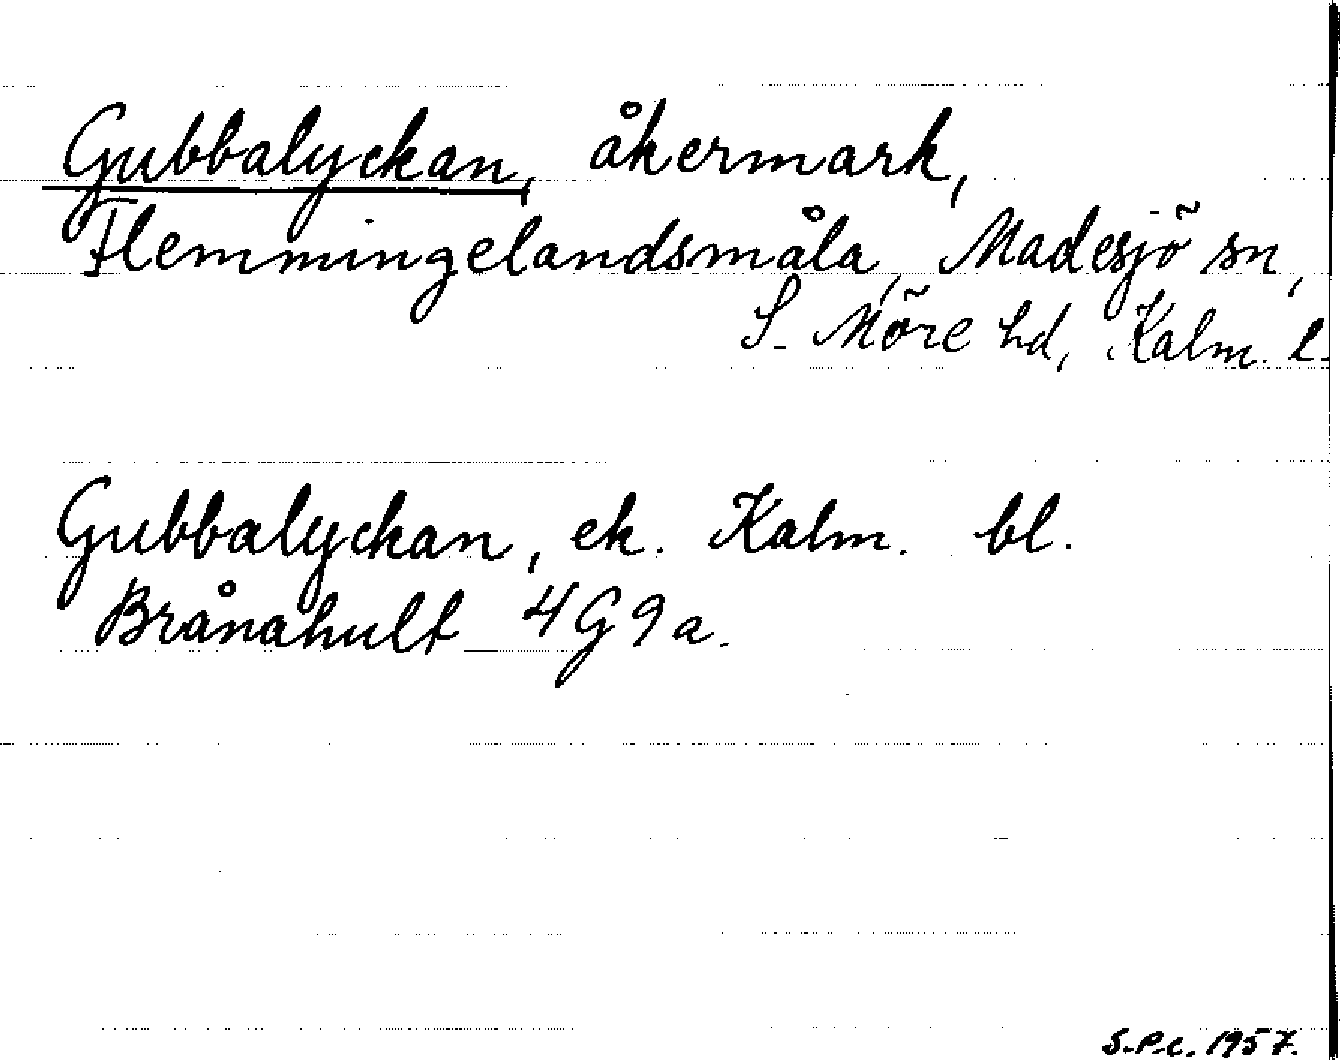 Gubbalyckan, åkermark,
Flemmingelandsmåla, Madesjö sn,
S. Möre hd, Kalm. l.
Gubbalyckan, ek. Kalm. bl.
Brånahult 4G9a.
S.P.C. 1957.